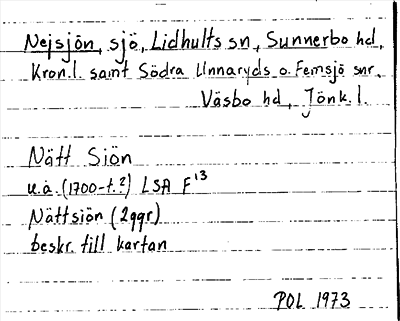 Nejsjön, sjö, Lidhults sn, Sunnerbo hd,
Kron.l. samt Södra Unnaryds o. Femsjö snr,
Väsbo hd, Jönk.l.
Nätt Siön
u.å. (1700-t.?) LSA F¹³
Nättsiön (2ggr)
beskr. till kartan
POL 1973